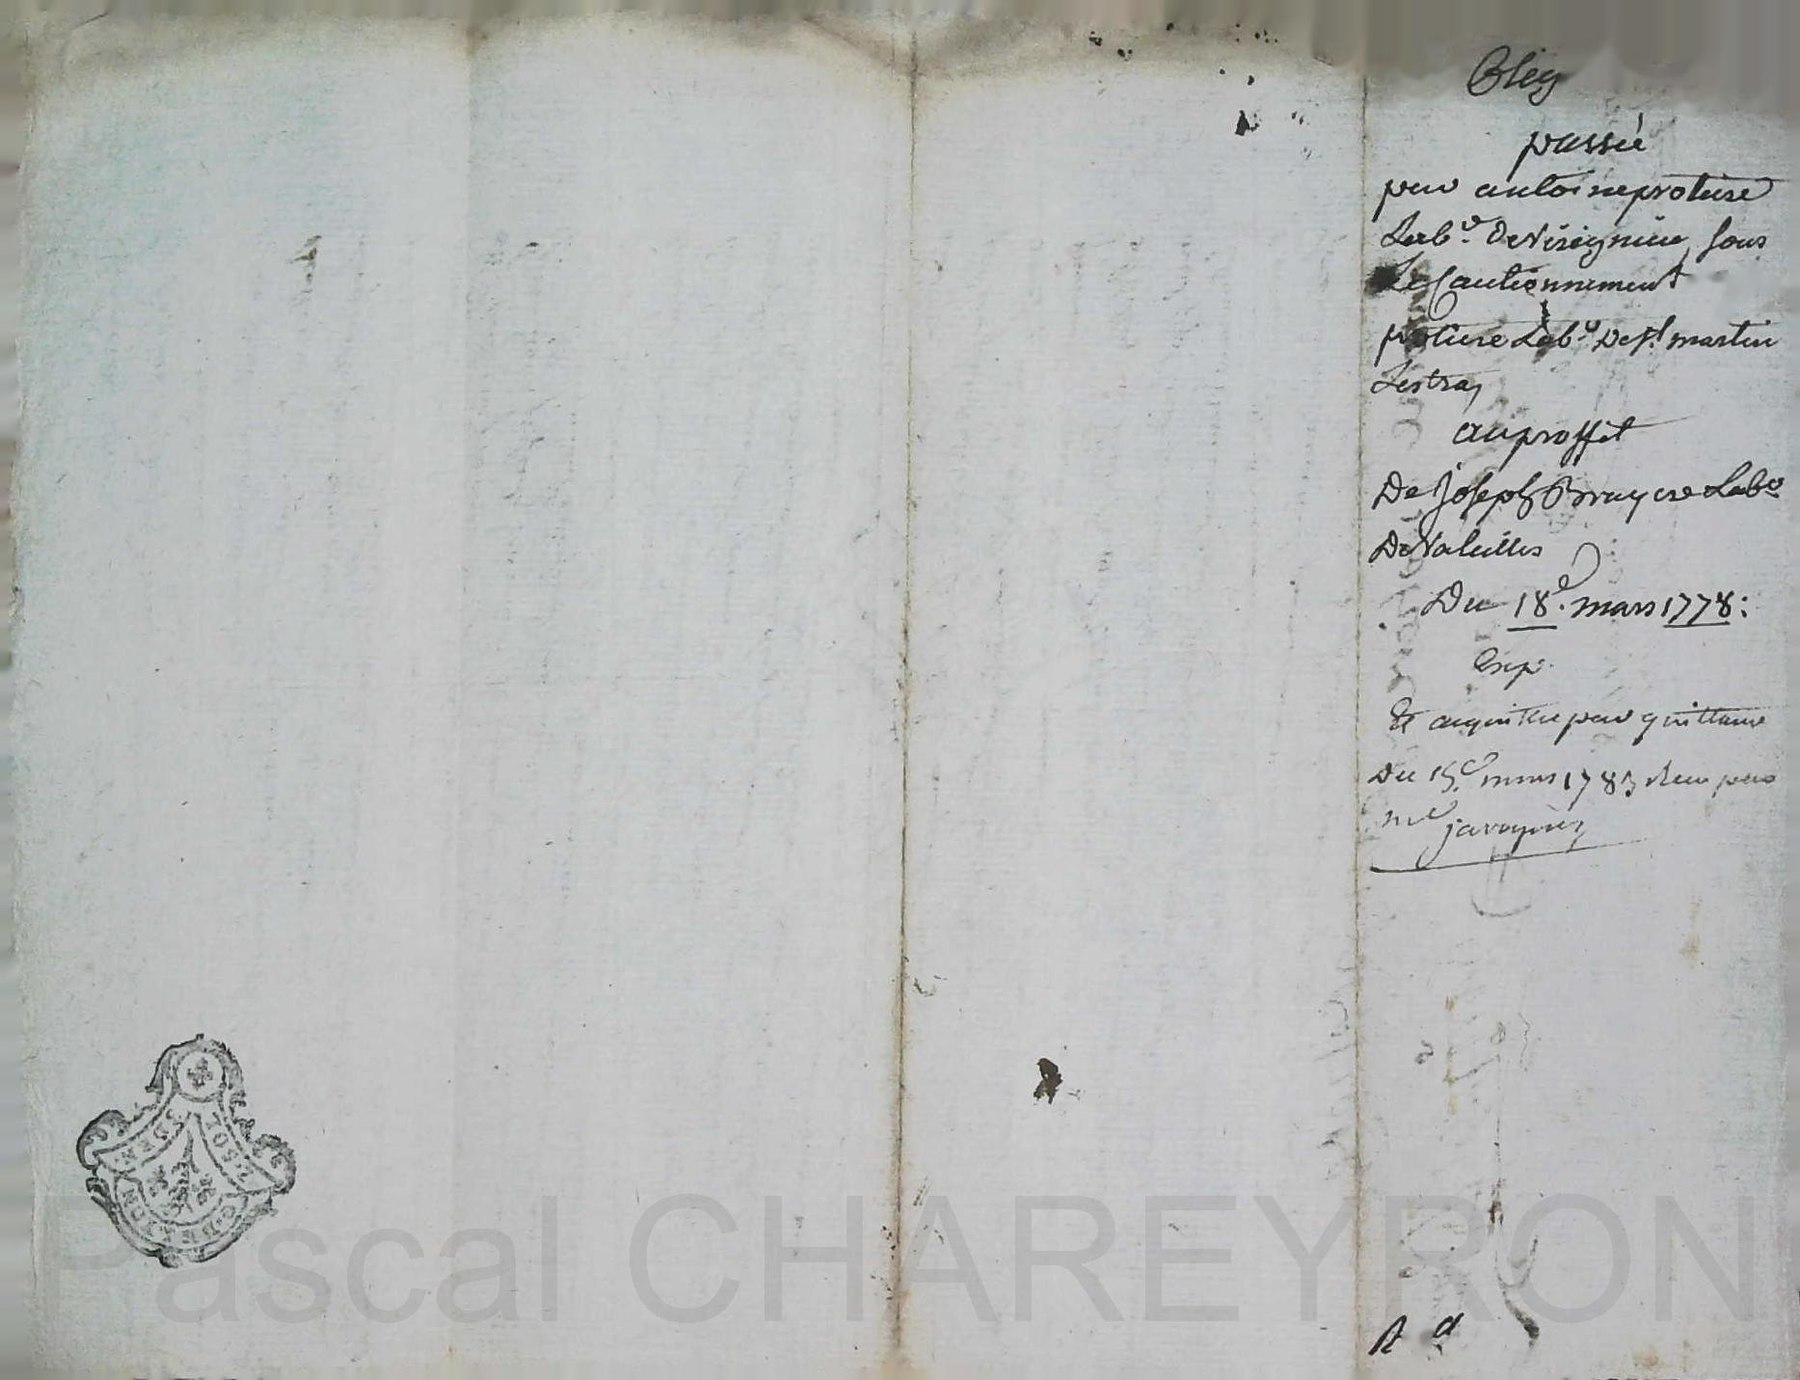 Oblig
passée
par antoine protiere
Labr. De Virignieu, sous
Le Cautionnement
protiere Labr. De St. martin
Lestra,
au proffit
De Joseph Bruyere Labr.
De Valeilles
Du 18e. mars 1778:
Exp.
Et acquittée par quittance
Du 15e. mars 1783 par
me
2. SOLS
G. DE LYON
Pascal CHAREYRON